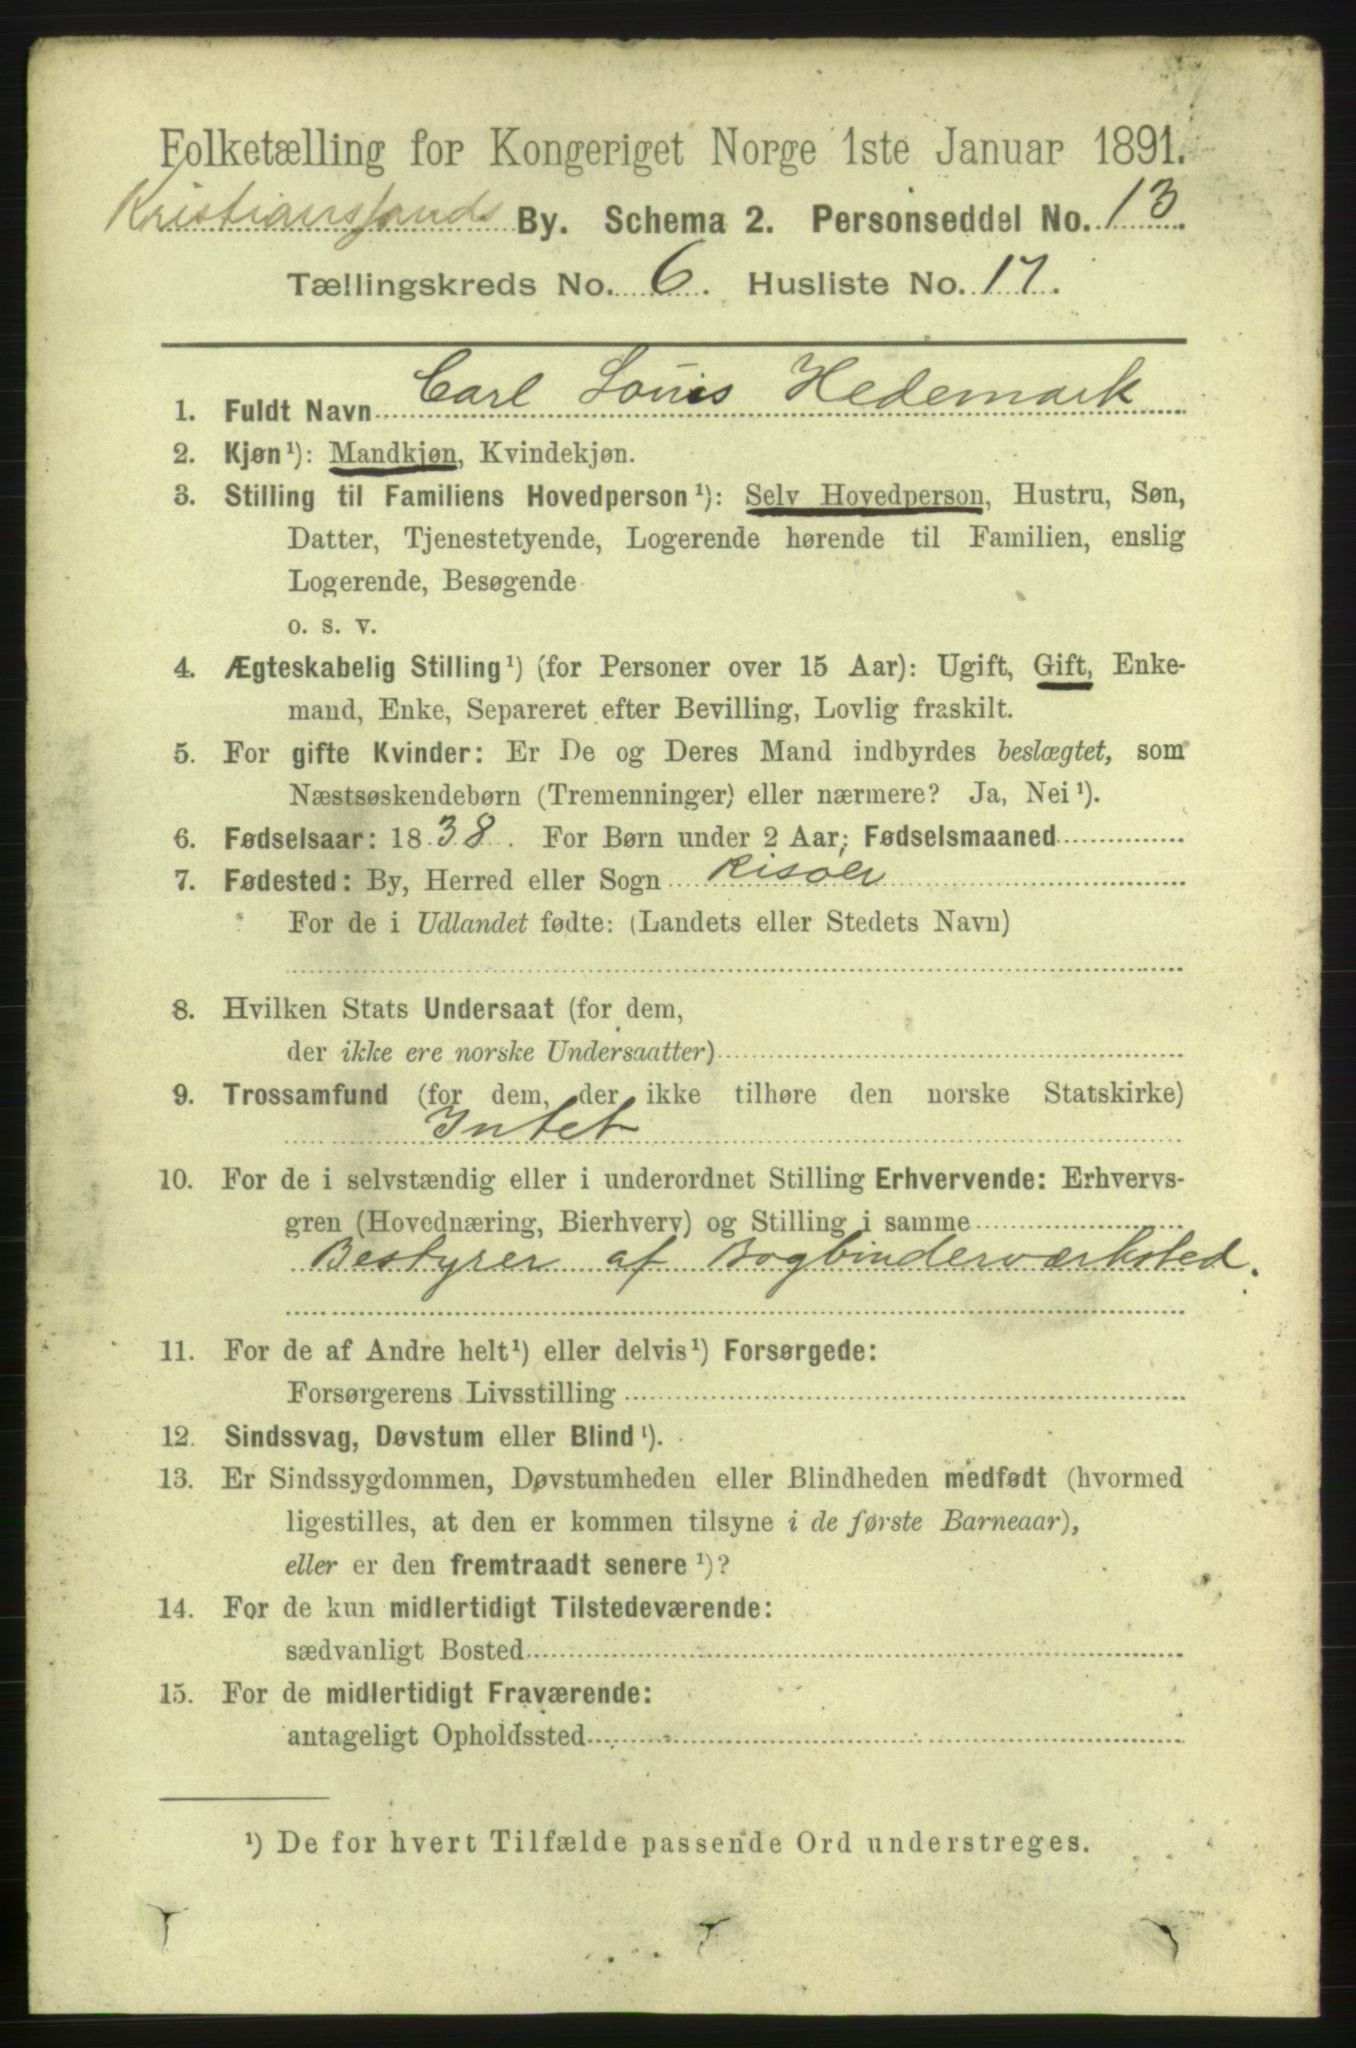 Folketælling for Kongeriget Norge 1ste Januar 1891.
Kristianssands By. Schema 2. Personseddel No. 13.
Tællingskreds No. 6. Husliste No. 17.
1. Fuldt Navn Carl Louis Hedemark
2. Kjøn¹): Mandkjøn, Kvindekjøn.
3. Stilling til Familiens Hovedperson¹): Selv Hovedperson, Hustru, Søn,
Datter, Tjenestetyende, Logerende hørende til Familien, enslig
Logerende, Besøgende
o. s. v.
4. Ægteskabelig Stilling¹) (for Personer over 15 Aar): Ugift, Gift, Enke-
mand, Enke, Separeret efter Bevilling, Lovlig fraskilt.
5. For gifte Kvinder: Er De og Deres Mand indbyrdes beslægtet, som
Næstsøskendebørn (Tremenninger) eller nærmere? Ja, Nei¹).
6. Fødselsaar: 1838. For Børn under 2 Aar; Fødselsmaaned
7. Fødested: By, Herred eller Sogn Risöer
For de i Udlandet fødte: (Landets eller Stedets Navn)
8. Hvilken Stats Undersaat (for dem,
der ikke ere norske Undersaatter)
9. Trossamfund (for dem, der ikke tilhøre den norske Statskirke)
Intet
10. For de i selvstændig eller i underordnet Stilling Erhvervende: Erhvervs-
gren (Hovednæring, Bierhverv) og Stilling i samme
Bestyrer af Bogbinderværksted.
11. For de af Andre helt¹) eller delvis¹) Forsørgede:
Forsørgerens Livsstilling
12. Sindssvag, Døvstum eller Blind¹).
13. Er Sindssygdommen, Døvstumheden eller Blindheden medfødt (hvormed
ligestilles, at den er kommen tilsyne i de første Barneaar),
eller er den fremtraadt senere¹)?
14. For de kun midlertidigt Tilstedeværende:
sædvanligt Bosted
15. For de midlertidigt Fraværende:
antageligt Opholdssted
¹) De for hvert Tilfælde passende Ord understreges.